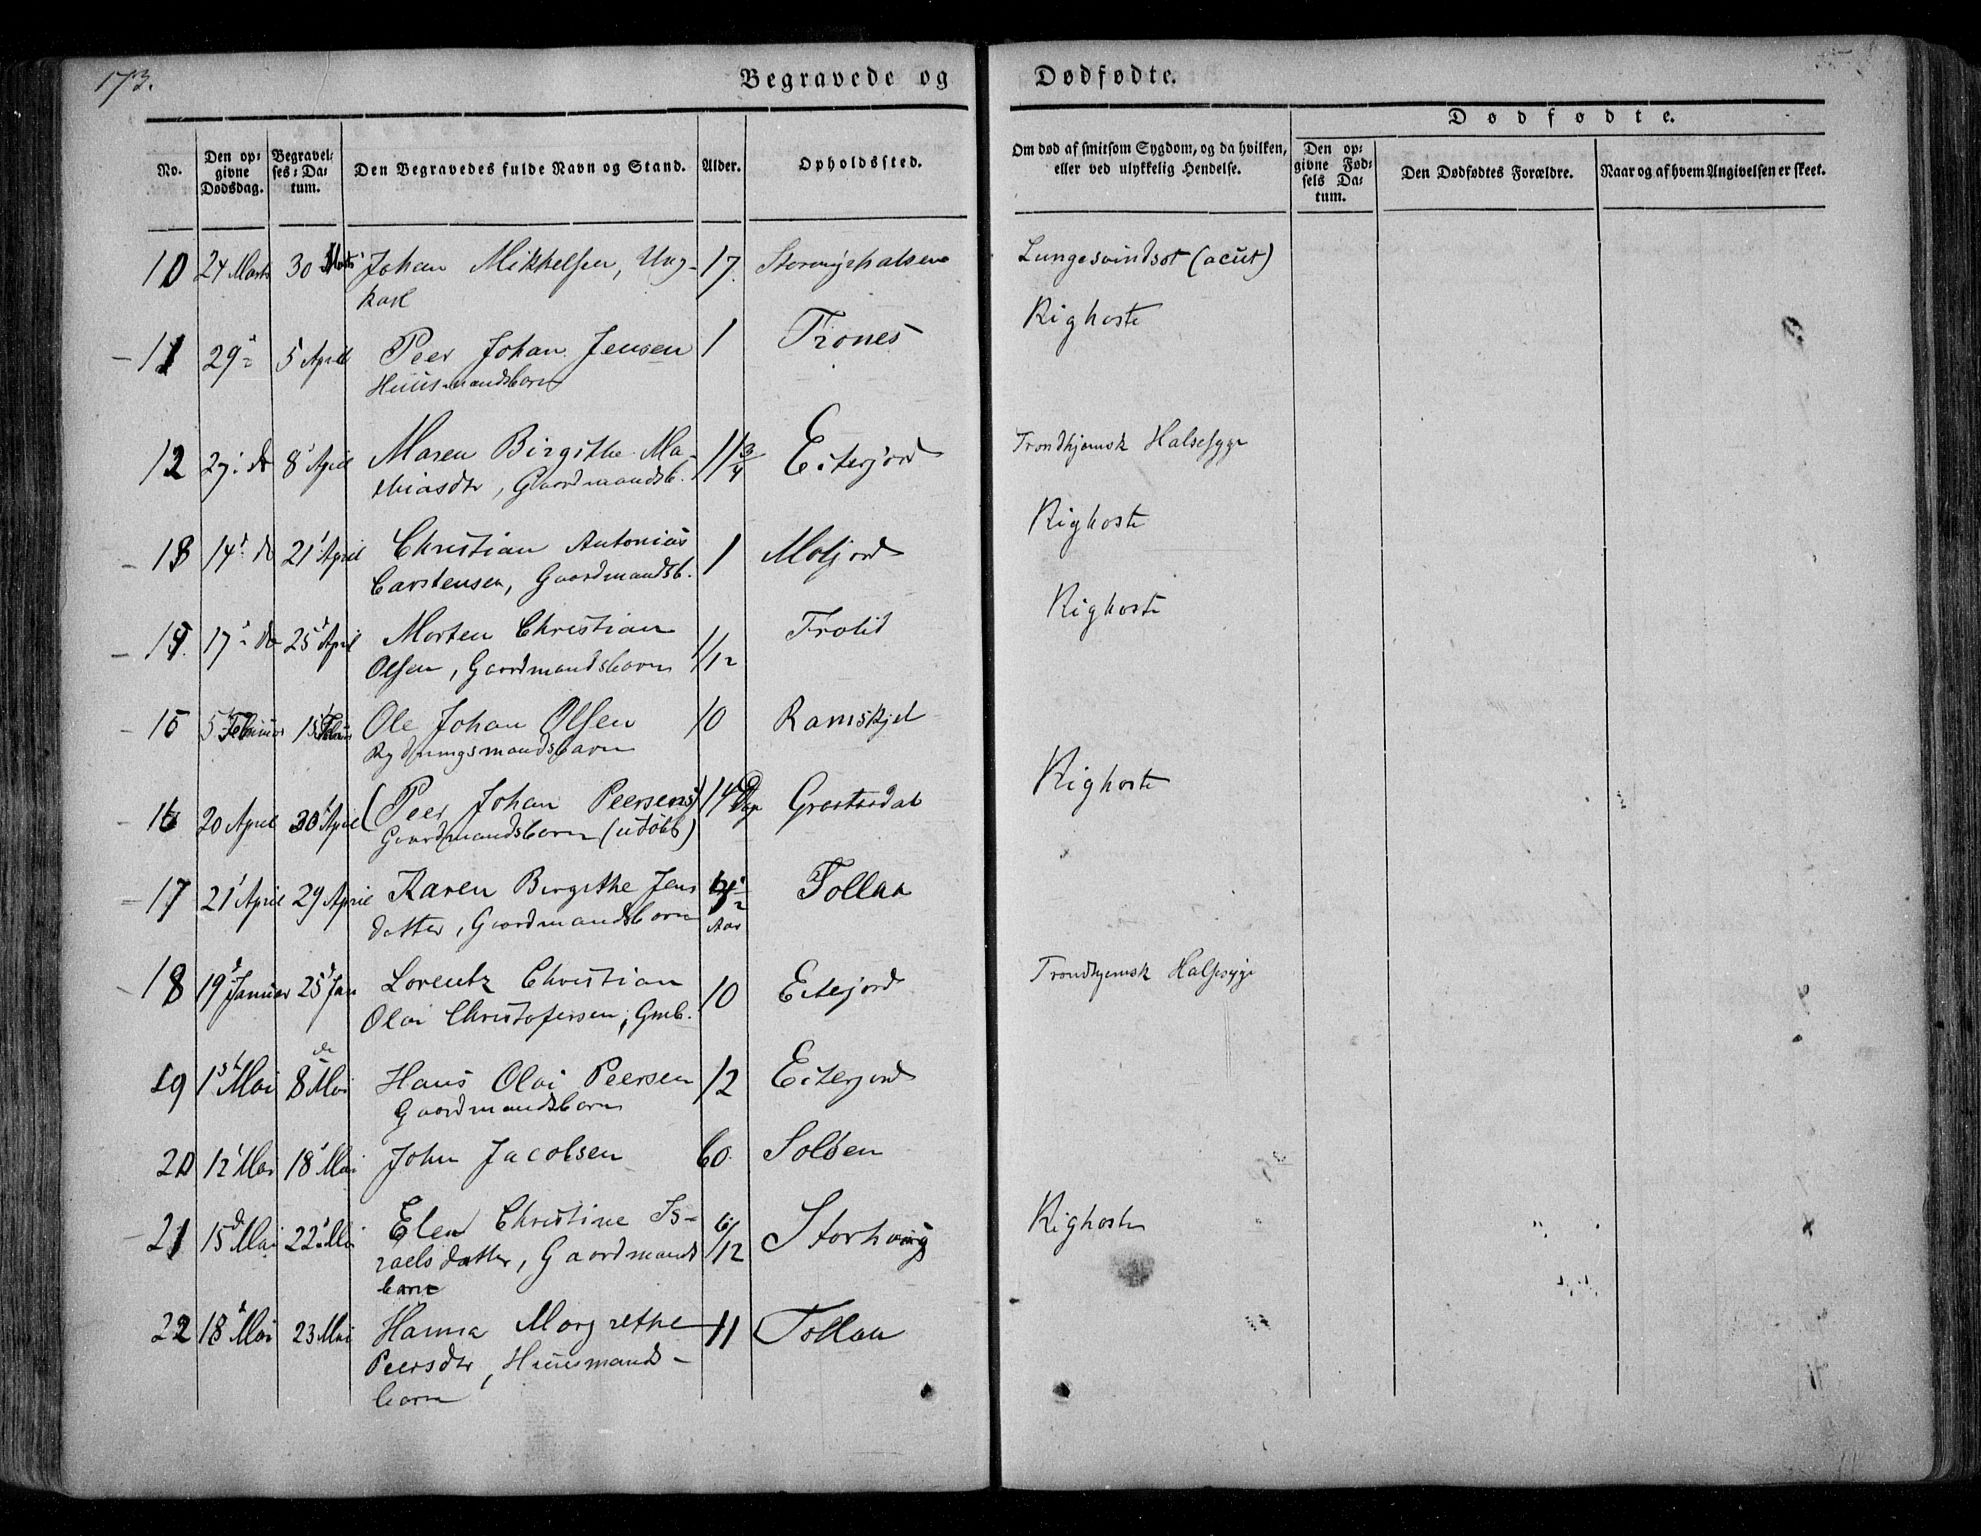 173.
Begravede og Dødfødte.
No.
Den opgivne Dødsdag.
Begravelses-Datum.
Den Begravedes fulde Navn og Stand.
Alder.
Opholdssted.
Om død af smitsom Sygdom, og da hvilken, eller ved ulykkelig Hendelse.
Dødfødte.
Den opgivne Fødsels Datum.
Den Dødfødtes Forældre.
Naar og af hvem Angivelsen er skeet.
10 24 Marts 30 Marts Johan Mikkelsen, Ung- 17. Lungesvindsot (acut)
karl
11 29 5 April Peer Johan Jensen 1 Trones Kighoste
Huusmandsbarn
12 27 do 8 April Maren Birgithe Ma- 11 3/4 Eiterjord Trondhjemsk Halssyge
thiasdtr, Gaardmandsb.
13 14 do 21 April Christian Antonius 1 Mofjord Kighoste
Carstensen, Gaardmandsb.
14. 17 do 25 April Morten Christian 1/12 Trolid Kighoste
Olsen, Gaardmandsbarn
15 5 Februar 15 Ole Johan Olsen 10 Ramskjel
Rydningsmandsbarn
16 20 April 30 April (Peer Johan Peersens) 14 Dage Kighoste
Gaardmandsbarn (udøbt)
17 21 April 29 April Karen Birgithe Jens Tollaa
datter, Gaardmandsbarn Aar
18 19 Januar 25 Jan Lorentz Christian 10 Eiterjord Trondhjemsk Halssyge
Olai Christofersen, Gmb.
19 1st Mai 8de Mai Hans Olai Peersen 12 Eiterjord
Gaardmandsbarn
20 12 Mai 18 Mai John Jacobsen 60. Soløen
21 15d Mai 22 Mai Elen Christine Is- 6/12 Storhaug Kighoste
raelsdatter, Gaardmands
barn
22 18 Mai 23 Mai Hanna Margrethe 11 Tollaa
Peersdtr, Huusmands-
barn